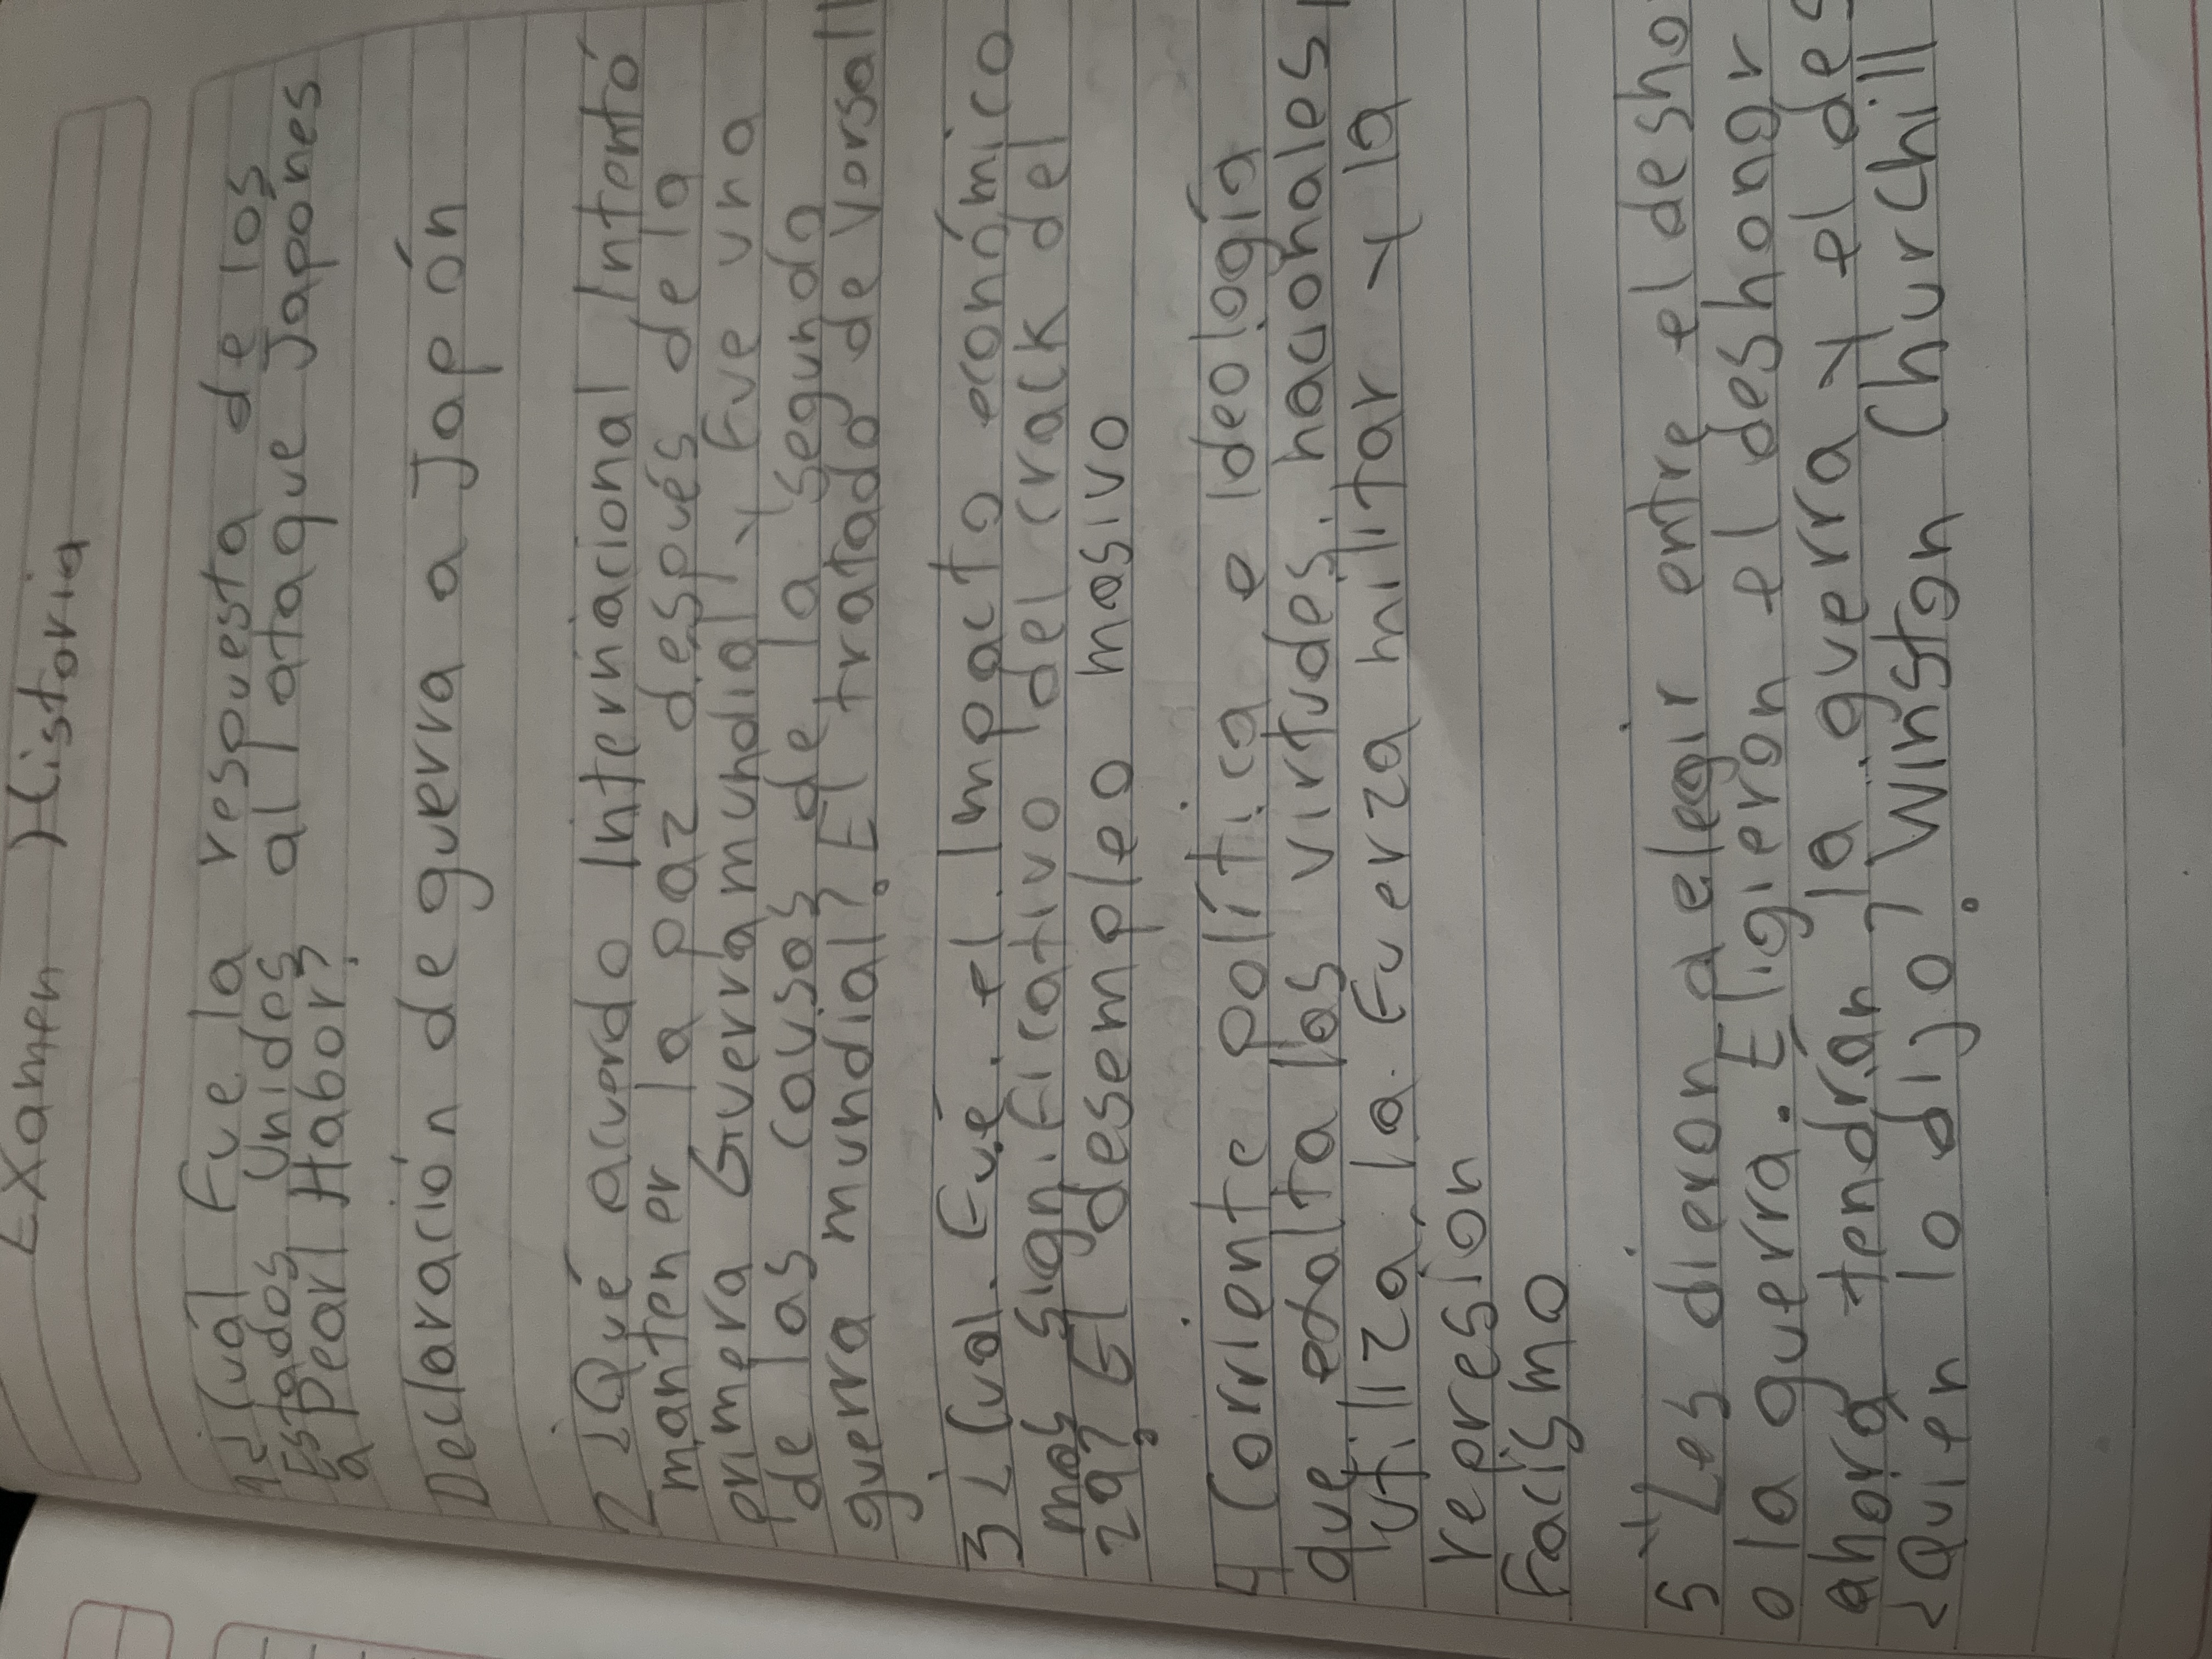 Examen Historia
1 ¿Cuál fue la respuesta de los
Estados Unidos al ataque Japones
a Pearl Habor?
Declaración de guerra a Japón
2 ¿Qué acuerdo Internacional Intentó
mantener la paz después de la
primera Guerra mundial y fue una
de las causas de la segunda
guerra mundial? El tratado de Versall
3 ¿Cual fue el Impacto económico
mas significativo del crack del
29? El desempleo masivo
4 Corriente política e Ideologia
que exalta las virtudes nacionales
utiliza la fuerza militar y la
represion
Facismo
5 "Les dieron a elegir entre el desho
o la guerra. Eligieron el deshonor
ahora tendran la guerra y el des
¿Quien lo dijo? Winston Churchill